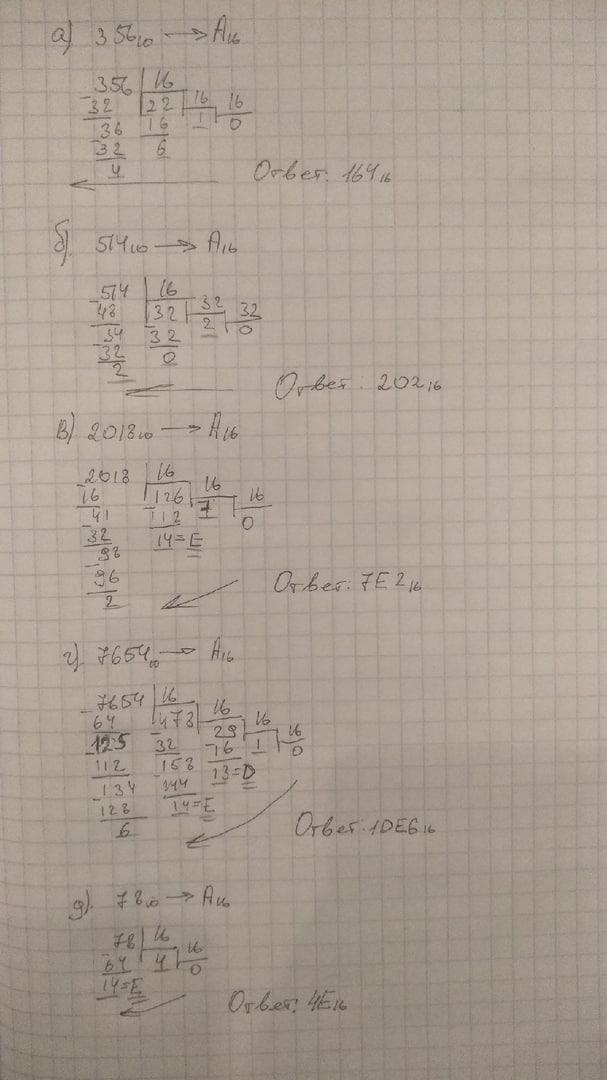 а) 356₁₀ → A₁₆
356 | 16
32 | 22 | 16 | 16
136 | 16 | 1 | 0
32 | 6
4
Ответ: 164₁₆
б). 514₁₀ → A₁₆
514 | 16
48 | 32 | 32 | 32
34 | 32 | 2 | 0
32 | 0
2
Ответ: 202₁₆
в) 2018₁₀ → A₁₆
2018 | 16
16 | 126 | 16 | 16
41 | 112 | 7 | 0
32 | 14=E
98
96
2
Ответ: 7E2₁₆
г). 7654₁₀ → A₁₆
7654 | 16
64 | 478 | 16 | 16 | 16
125 | 32 | 29 | 1 | 0
112 | 158 | 16
134 | 144 | 13=D
128 | 14=E
6
Ответ: 1DE6₁₆
д). 78₁₀ → A₁₆
78 | 16 | 16
64 | 4 | 0
14=E
Ответ: 4E₁₆